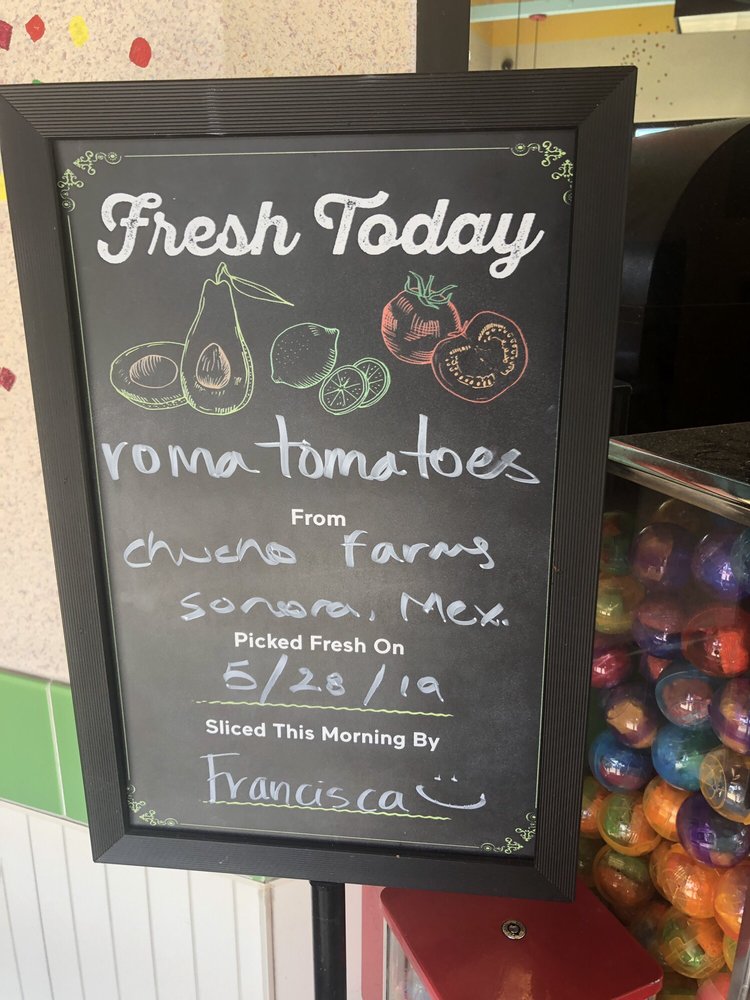 Fresh Today
roma tomatoes
From
chucho farms
sonora, Mex.
Picked Fresh On
5/28/19
Sliced This Morning By
Francisca